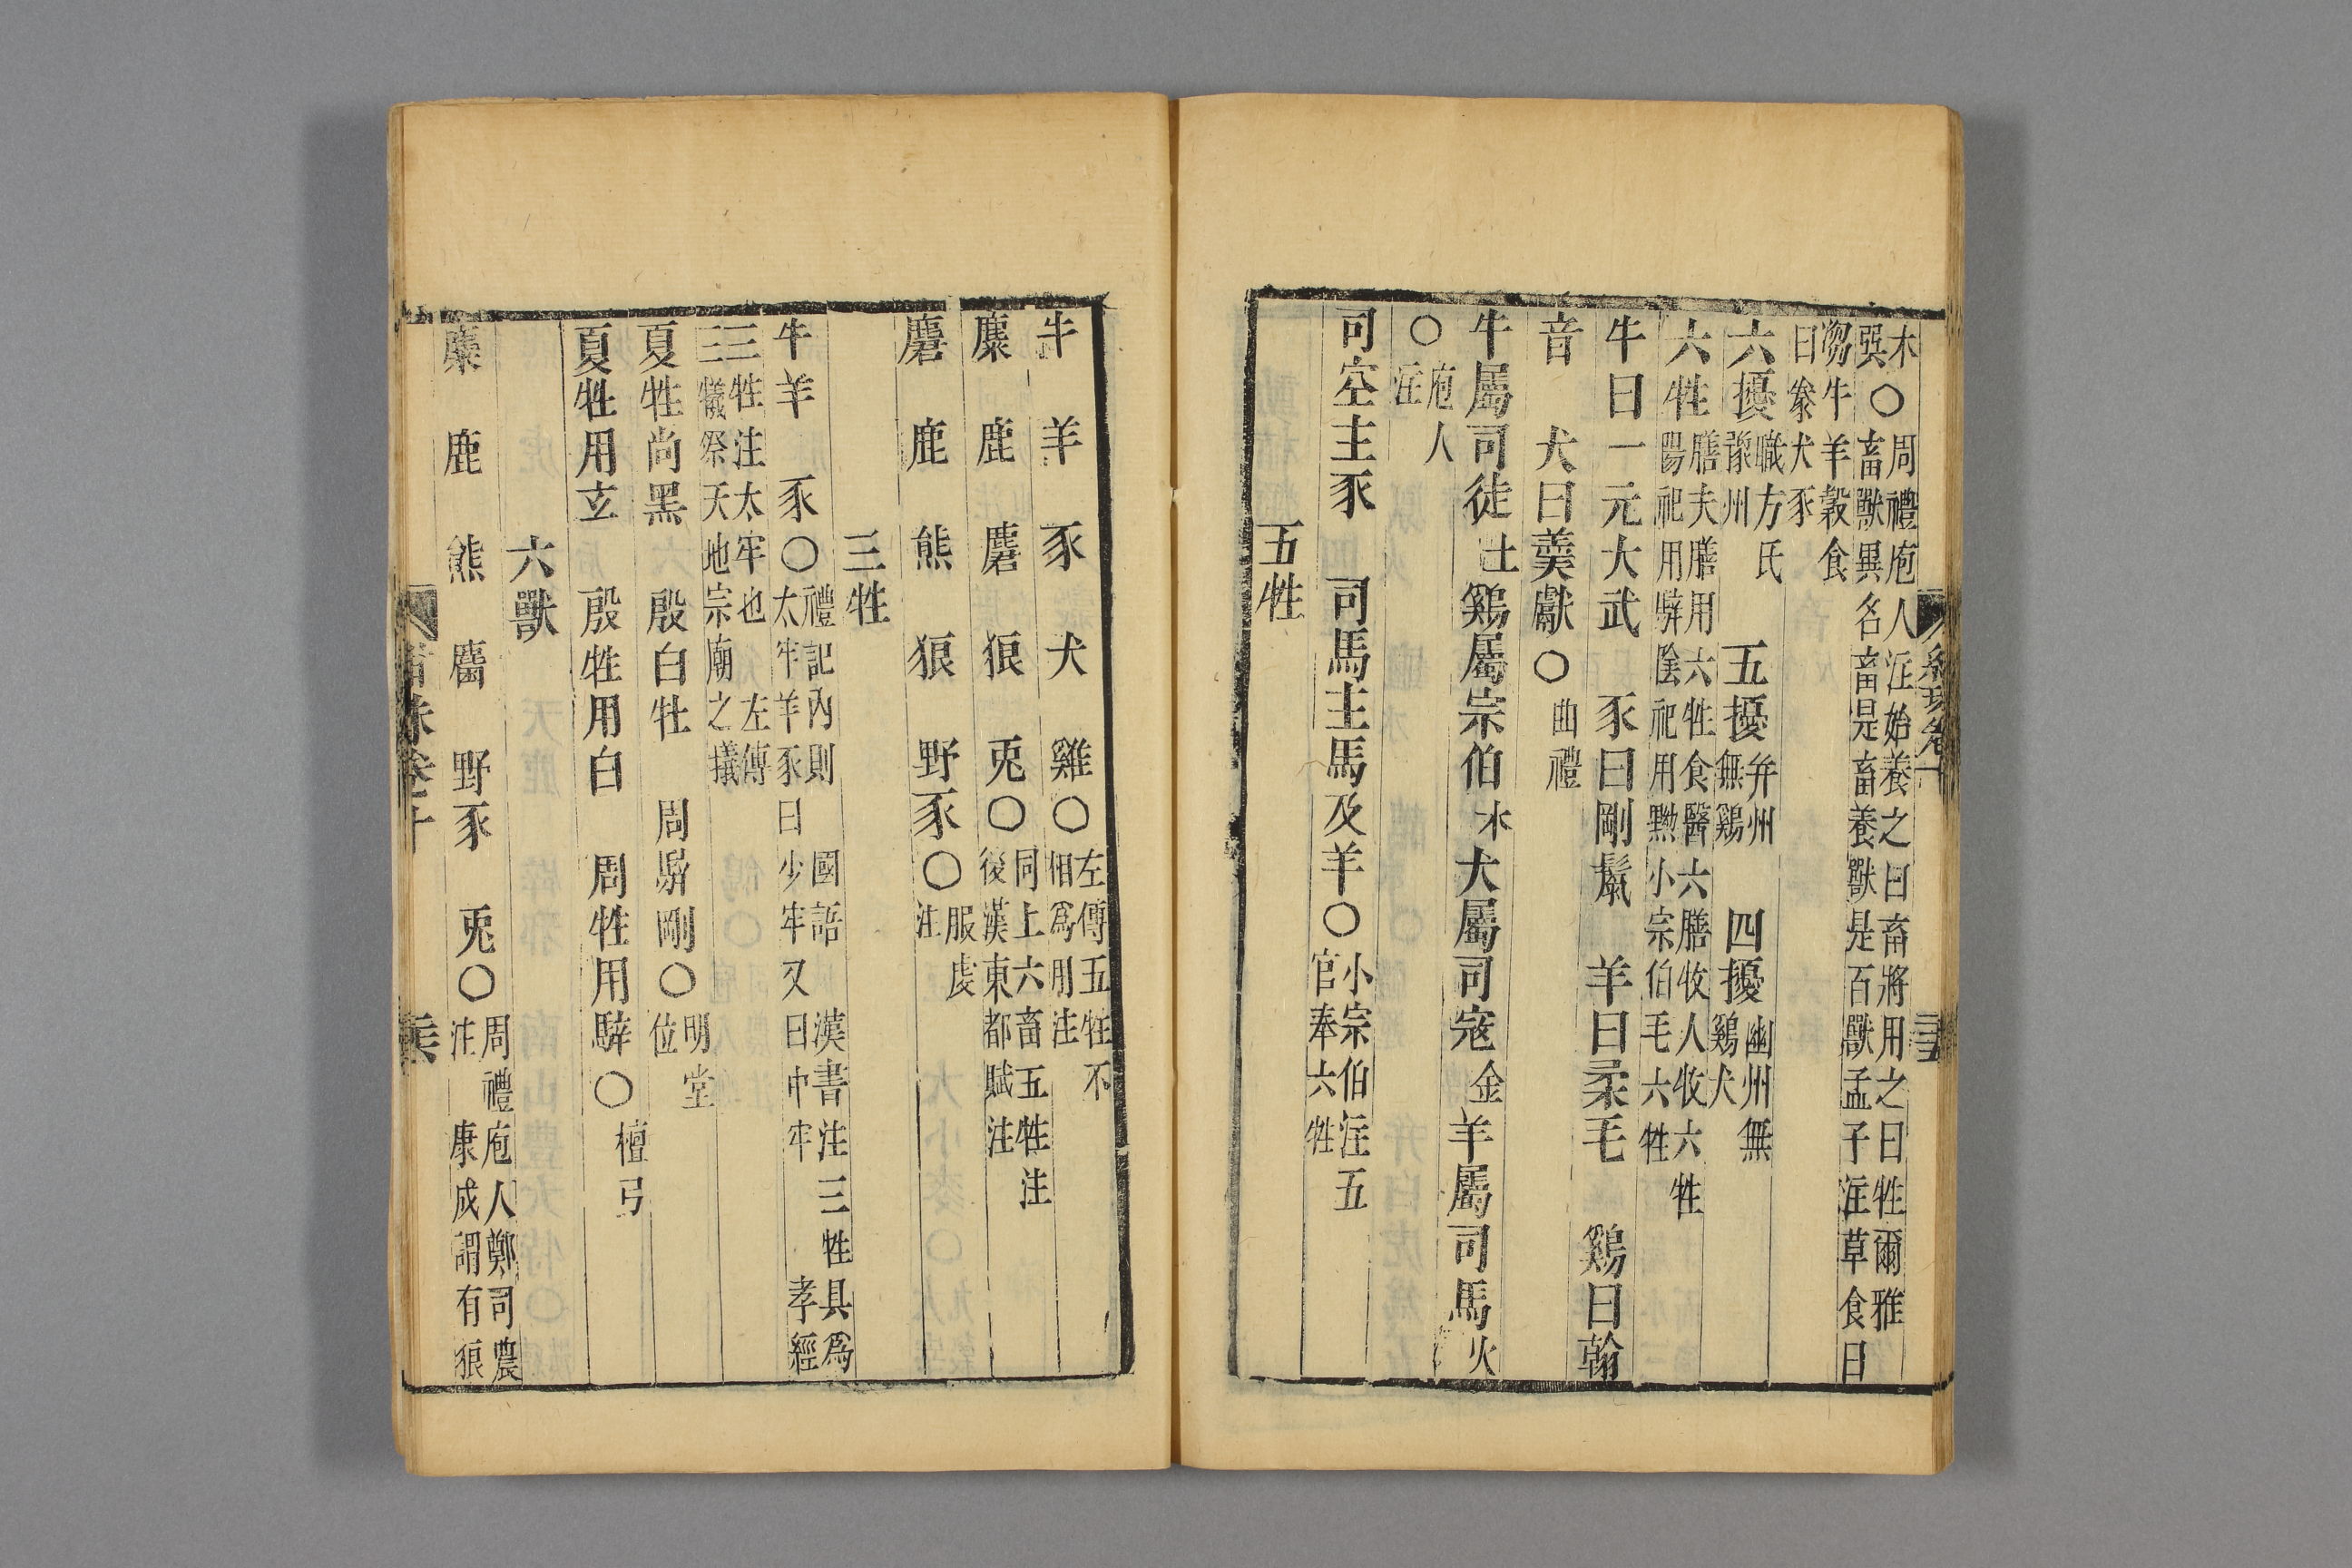 木○周禮庖人注始養之曰畜將用之曰牲爾雅
巽○畜獸異名畜是畜養獸是百獸孟子注草食曰
芻牛羊穀食
曰豢犬豕
六擾職方氏豫州 五擾并州無鷄 四擾幽州無鷄犬
六牲膳夫膳用六牲食醫六膳牧人牧六牲
陽祀用騂陰祀用黝小宗伯毛六牲
牛曰一元大武 豕曰剛鬣 羊曰柔毛 鷄曰翰
音 犬曰羹獻○曲禮
牛屬司徒土鷄屬宗伯木犬屬司寇金羊屬司馬火
○庖人注
司空主豕 司馬主馬及羊○小宗伯注五官奉六牲
五牲
牛 羊 豕 犬 雞○左傳五牲不相爲用注
麋 鹿 麏 狼 兎○同上六畜五牲注後漢東都賦注
麏 鹿 熊 狼 野豕○服虔注
三牲
牛羊 豕○禮記內則 國語 漢書注三牲具爲
太牢羊豕曰少牢又曰中牢 孝經
三牲注太牢也 左傳
三犧祭天地宗廟之犧
夏牲尚黑 殷白牡 周騂剛○明堂位
夏牲用玄 殷牲用白 周牲用騂○檀弓
六獸
麋 鹿 熊 麕 野豕 兎○周禮庖人鄭司農
注 康成謂有狼